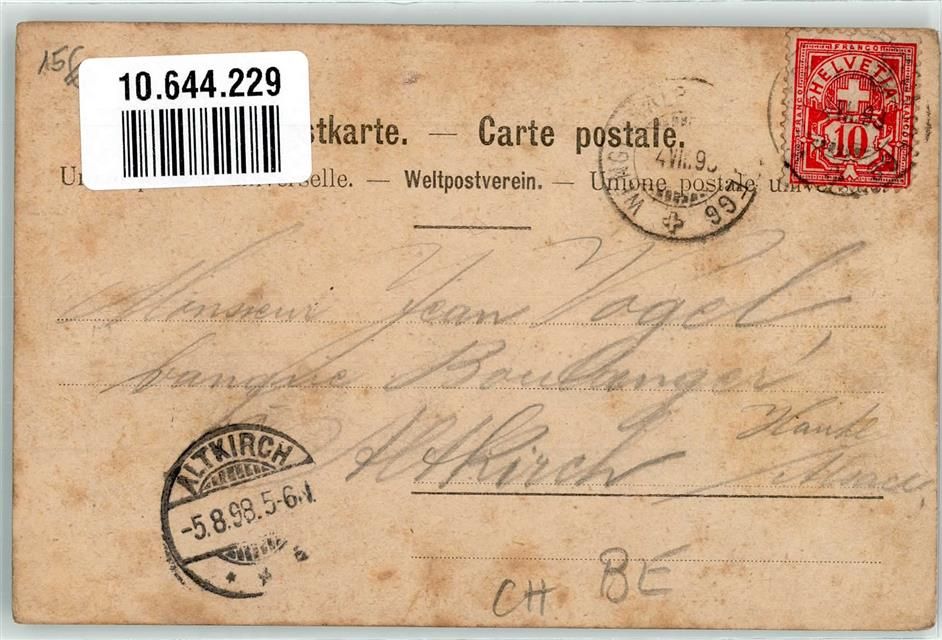 15
10.644.229
stkarte. — Carte postale.
Un universelle. — Weltpostverein. — Unione postale universale
FRANCO
HELVETIA
10
FRANCO
FRANCO
WENG ALP
4 VIII 98
GG
Monsieur Jean Vogel
banque Boulanger
à Altkirch
Haute
Alsace
ALTKIRCH
-5.8.98.5-6N
CH BE